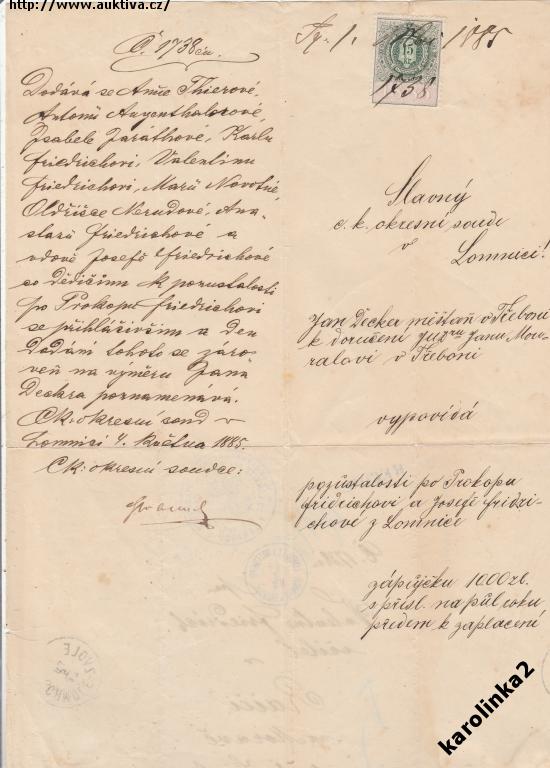 http://www.auktiva.cz/
Č. 1738 civ.
Dodává se Anně Thierové,
Antonii Augenthalerové,
Isabele Zaráthové, Karlu
Friedrichovi, Valentinu
Friedrichovi, Marii Novotné,
Oldřišce Nerudové, Ana-
stazii Friedrichové a
vdově Josefě Friedrichové
co dědičům k pozustalosti
po Prokopu Friedrichovi
se přihlásivším a den
dodání tohoto se záro-
veň na výměru Jana
Deckra poznamenává.
Ck: okresní soud v
Lomnici 4. května 1885.
Ck: okresní soudce:
1885
15
1738
Slavný
c. k. okresní soude
v
Lomnici!
Jan Decker měšťan v Třeboni
k doručení JUdru Janu Mou-
ralovi v Třeboni
vypovídá
pozůstalosti po Prokopu
Fridrichovi a Josefě Fridri-
chové z Lomnice
zápůjčku 1000 zl.
s přísl. na půl roku
předem k zaplacení
karolinka2